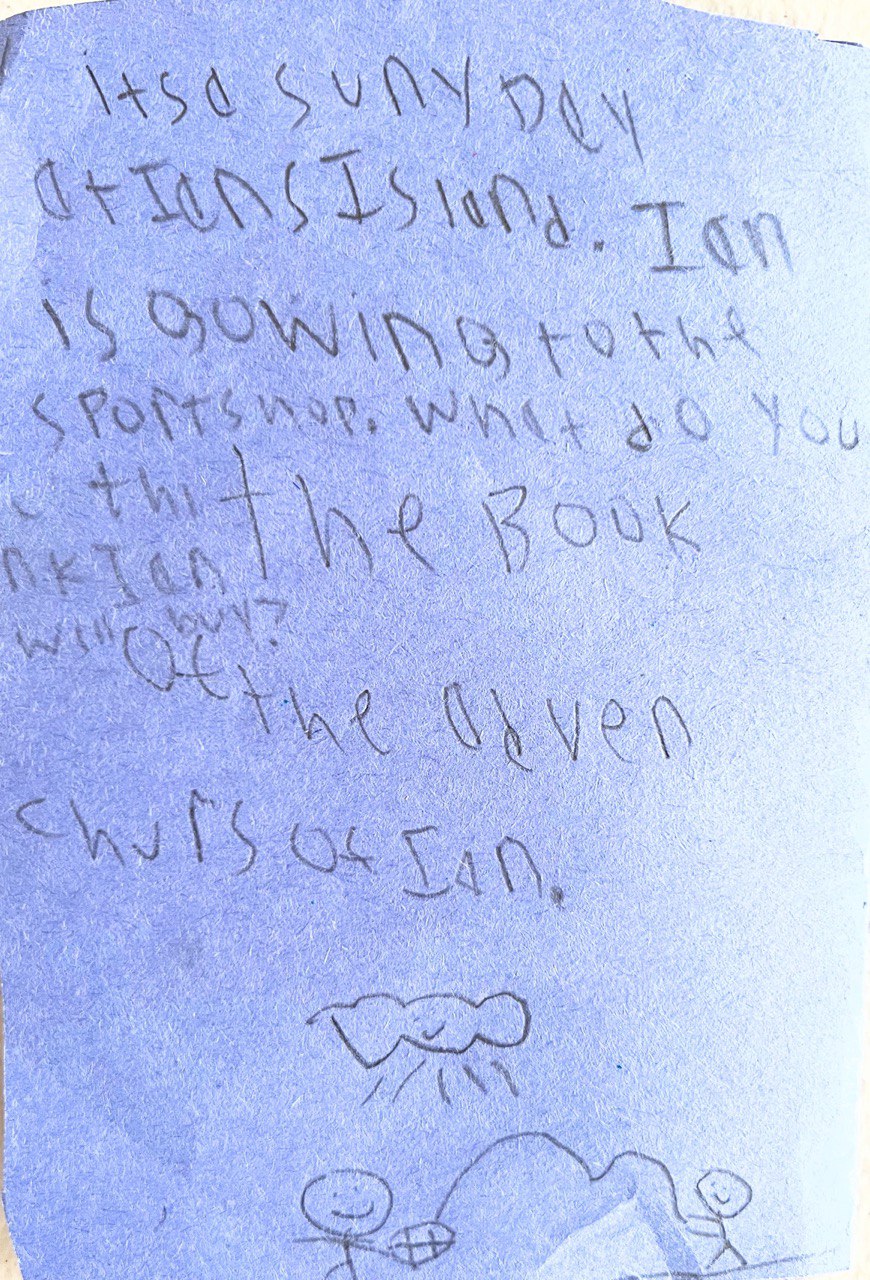 Itsa suny Day
at Ians Island. Ian
is gowing to the
sportshop. What do you
thi
nk Ian
will buy?
the Book
Of
the adven
churs of Ian.